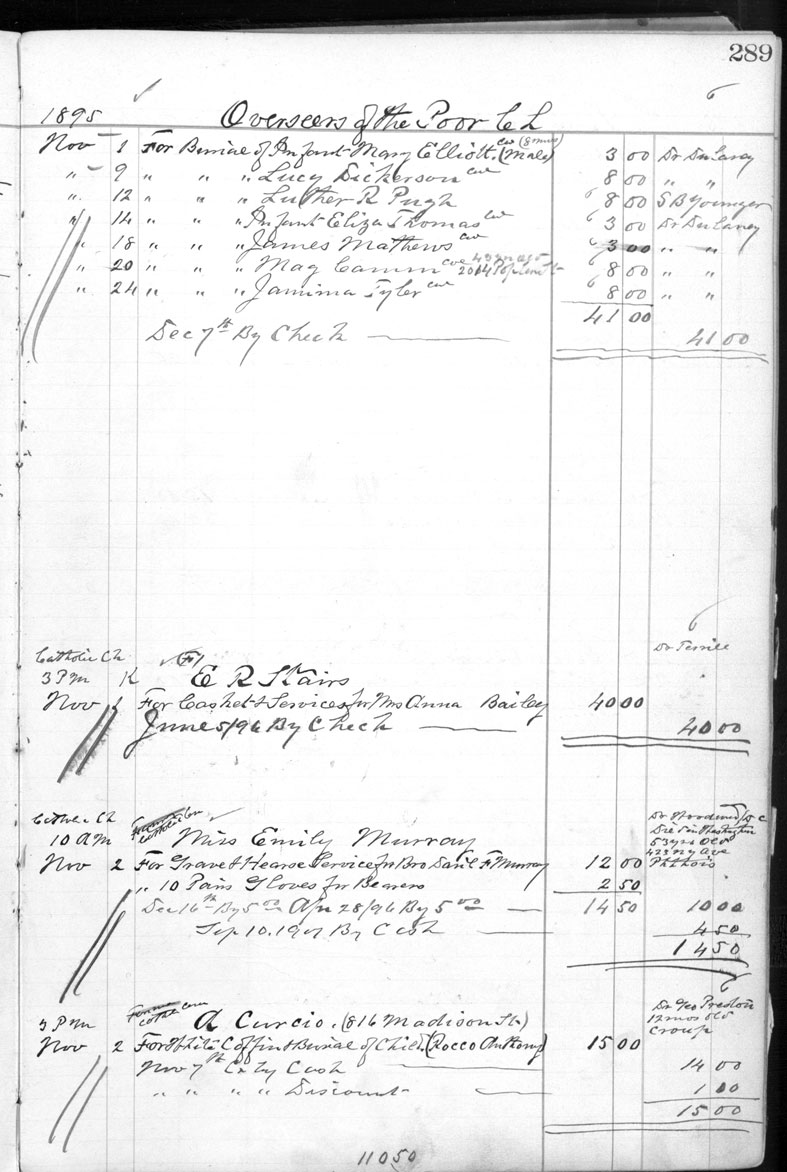 289
1895 Overseers of the Poor C L
Nov 1 For Burial of Infant Mary Elliott. col (8 mos) (Male) 3 00 Dr Dulaney
" 9 " " " Lucy Dickerson col 8 00 " "
" 12 " " " Luther R Pugh 8 00 S B Younger
" 14 " " " Infant Eliza Thomas col 3 00 Dr Dulaney
" 18 " " " James Mathews col 3 00 " "
" 20 " " " Mag Camm col 43 yrs ago 2014 Popler St 8 00 " "
" 24 " " " Jamima Tyler col 8 00 " "
41 00
Dec 7th By Check 41 00
Dr Terrill
Catholic Ch
3 P m K (For) E R Stairs
Nov 1 For Casket & Services for Mrs Anna Bailey 40 00
June 5/96 By Check 40 00
Catholic Ch Dr Woodward D C
10 A m Miss Emily Murray Died in Washington
53 yrs old
423 N Y Ave
Nov 2 For Grave & Hearse Service for Bro Dan'l F Murray 12 00 Phthois
" 10 Pairs Gloves for Bearers 2 50
Dec 16th By 5 00 Apr 28/96 By 5 00 14 50 10 00
Sep 10. 1901 By Cash 4 50
14 50
3 P m A Curcio. (816 Madison St) Dr Geo Preston
12 mos old
Croup
Nov 2 For White Coffin & Burial of Child. (Rocco Anthony) 15 00
Nov 7th Cr by Cash 14 00
" " " " Discount 1 00
15 00
110 50